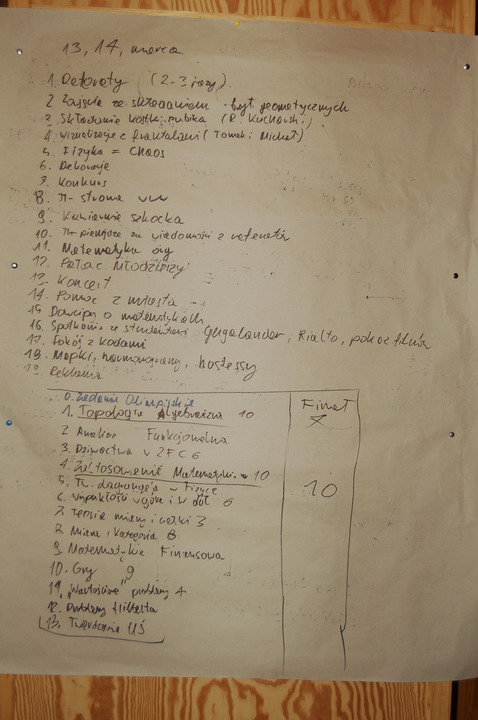 13, 14, marca
1. Referaty (2-3 razy)
2 Zajęcia ze składaniem brył geometrycznych
3. Składanie kostki rubika (R. Kuchowski)
4. wizualizacje z fraktalami (Tomek i Michał)
5. Fizyka = Chaos
6. Dekoracje
7. Konkurs
8. π- strona www
9. Kawiarnia szkocka
10. π- pieniądze za wiadomości z referatów
11. Matematyka
12. Pałac Młodzieży
13. Koncert
14. Pomoc z miasta -
15 Dowcipy o matematykach
16. Spotkania ze studentami Rialto, pokaz filmów
17. Pokój z kodami
18. Mapki, harmonogramy, hostessy
19. Reklama
0. Zadania Olimpijskie
1. Topologia Algebraiczna 10
Finał
7
2 Analiza Funkcjonalna
3. Dziwactwa w ZFC 6
4. Zastosowania Matematyki 10
5. Tw. w Fizyce
10
6. wypukłość w górę i w dół 6
7. Teoria miary i całki 3
8. Miara i Kategoria 6
9. Matematyka Finansowa
10. Gry 9
11. "Wartościowe" problemy 4
12. Problemy Hilberta
13. Twierdzenie UŚ